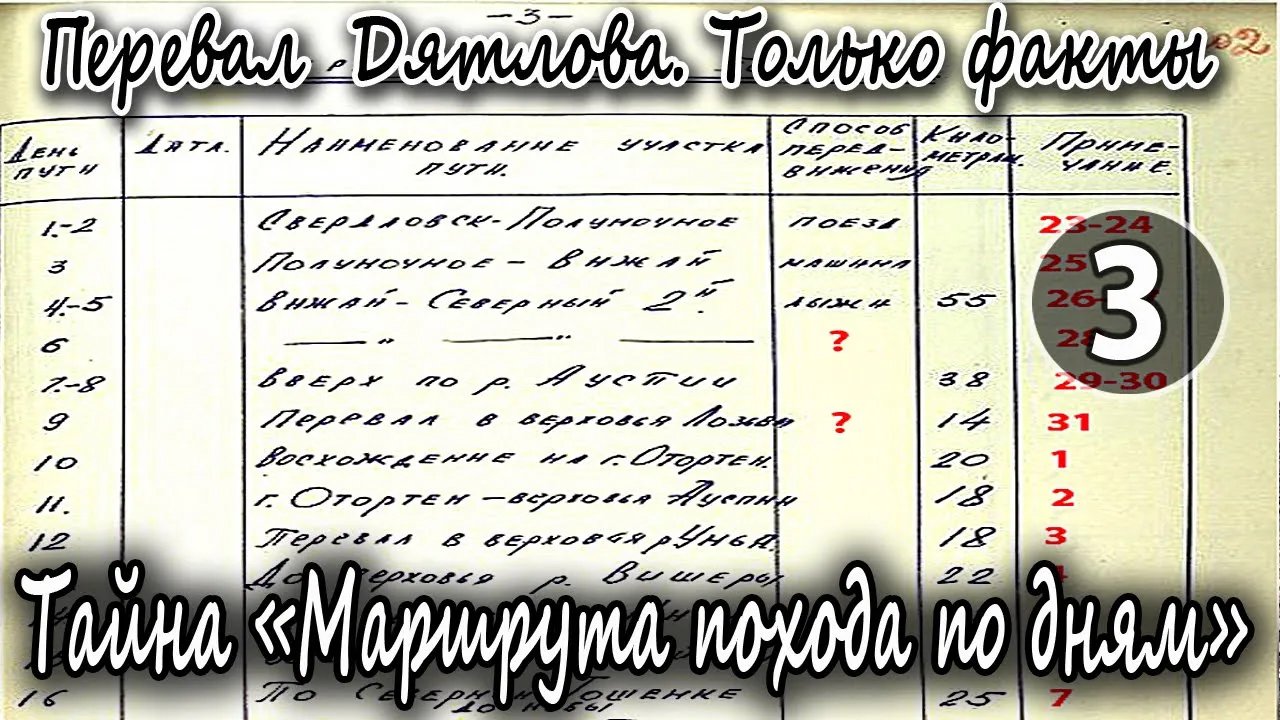 -3-
Перевал Дятлова. Только факты
День пути Дата. Наименование участка пути. Способ передвижения Километраж. Примечание.
1.-2 Свердловск-Полуночное поезд 23-24
3 Полуночное - Вижай машина 25
4.-5 Вижай- Северный 2й. лыжи 55 26-
6 — " — " — ? 28
7.-8 Вверх по р. Ауспии 38 29-30
9 Перевал в верховья Лозьвы ? 14 31
10 Восхождение на г. Отортен. 20 1
11. г. Отортен -верховья Ауспии 18 2
12 Перевал в верховья р.Унья. 18 3
До верховья р. Вишеры 22
3
Тайна «Маршрута похода по дням»
16 По Северной Тошемке 25 7